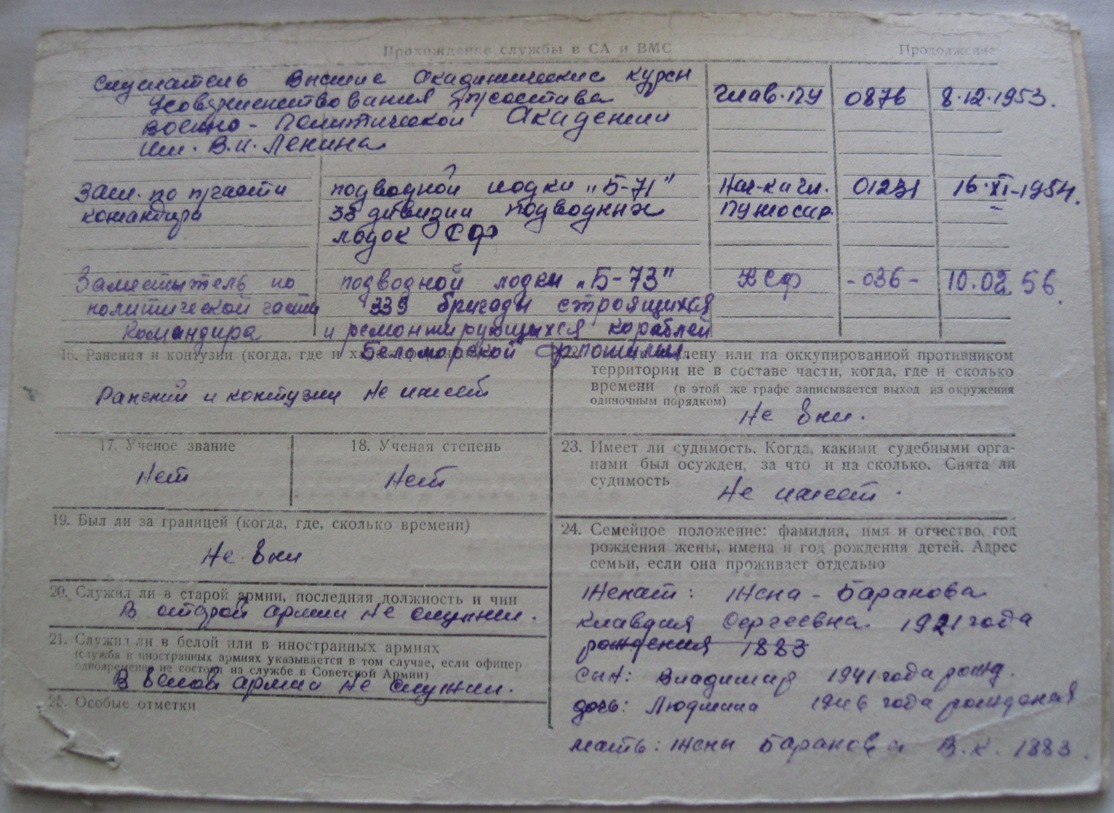 Прохождение службы в СА и ВМС Продолжение
Слушатель Высшие Академические курсы
усовершенствования п/состава Глав.ПУ 0876 8.12.1953.
Военно-Политической Академии
им. В.И. Ленина
Зам. по п/части подводной лодки "Б-71" Нач-ка Гл. 01231 16.XI-1954.
командира 33 дивизии подводных
лодок СФ
Заместитель по подводной лодки "Б-73" ВСФ -036- 10.02.56.
политической части 339 бригады строящихся
Командира и ремонтирующихся кораблей
Беломорской флотилии
16. Ранения и контузии (когда, где и
Ранений и контузии Не имеет
плену или на оккупированной противником
территории не в составе части, когда, где и сколько
времени (в этой же графе записывается выход из окружения
одиночным порядком)
Не был.
17. Ученое звание
Нет
18. Ученая степень
Нет
23. Имеет ли судимость. Когда, какими судебными орга-
нами был осужден, за что и на сколько. Снята ли
судимость
Не имеет.
19. Был ли за границей (когда, где, сколько времени)
Не был
20. Служил ли в старой армии, последняя должность и чин
В старой армии Не служил.
21. Служил ли в белой или в иностранных армиях
(служба в иностранных армиях указывается в том случае, если офицер
одновременно не состоял на службе в Советской Армии)
В белой армии Не служил.
25. Особые отметки
24. Семейное положение: фамилия, имя и отчество, год
рождения жены, имена и год рождения детей. Адрес
семьи, если она проживает отдельно
Женат: Жена - Баранова
Клавдия Сергеевна 1921 года
рождения 1883
сын: Владимир 1941 года рожд.
дочь: Людмила 1946 года рождения
мать: Жены Баранова В.К. 1883.